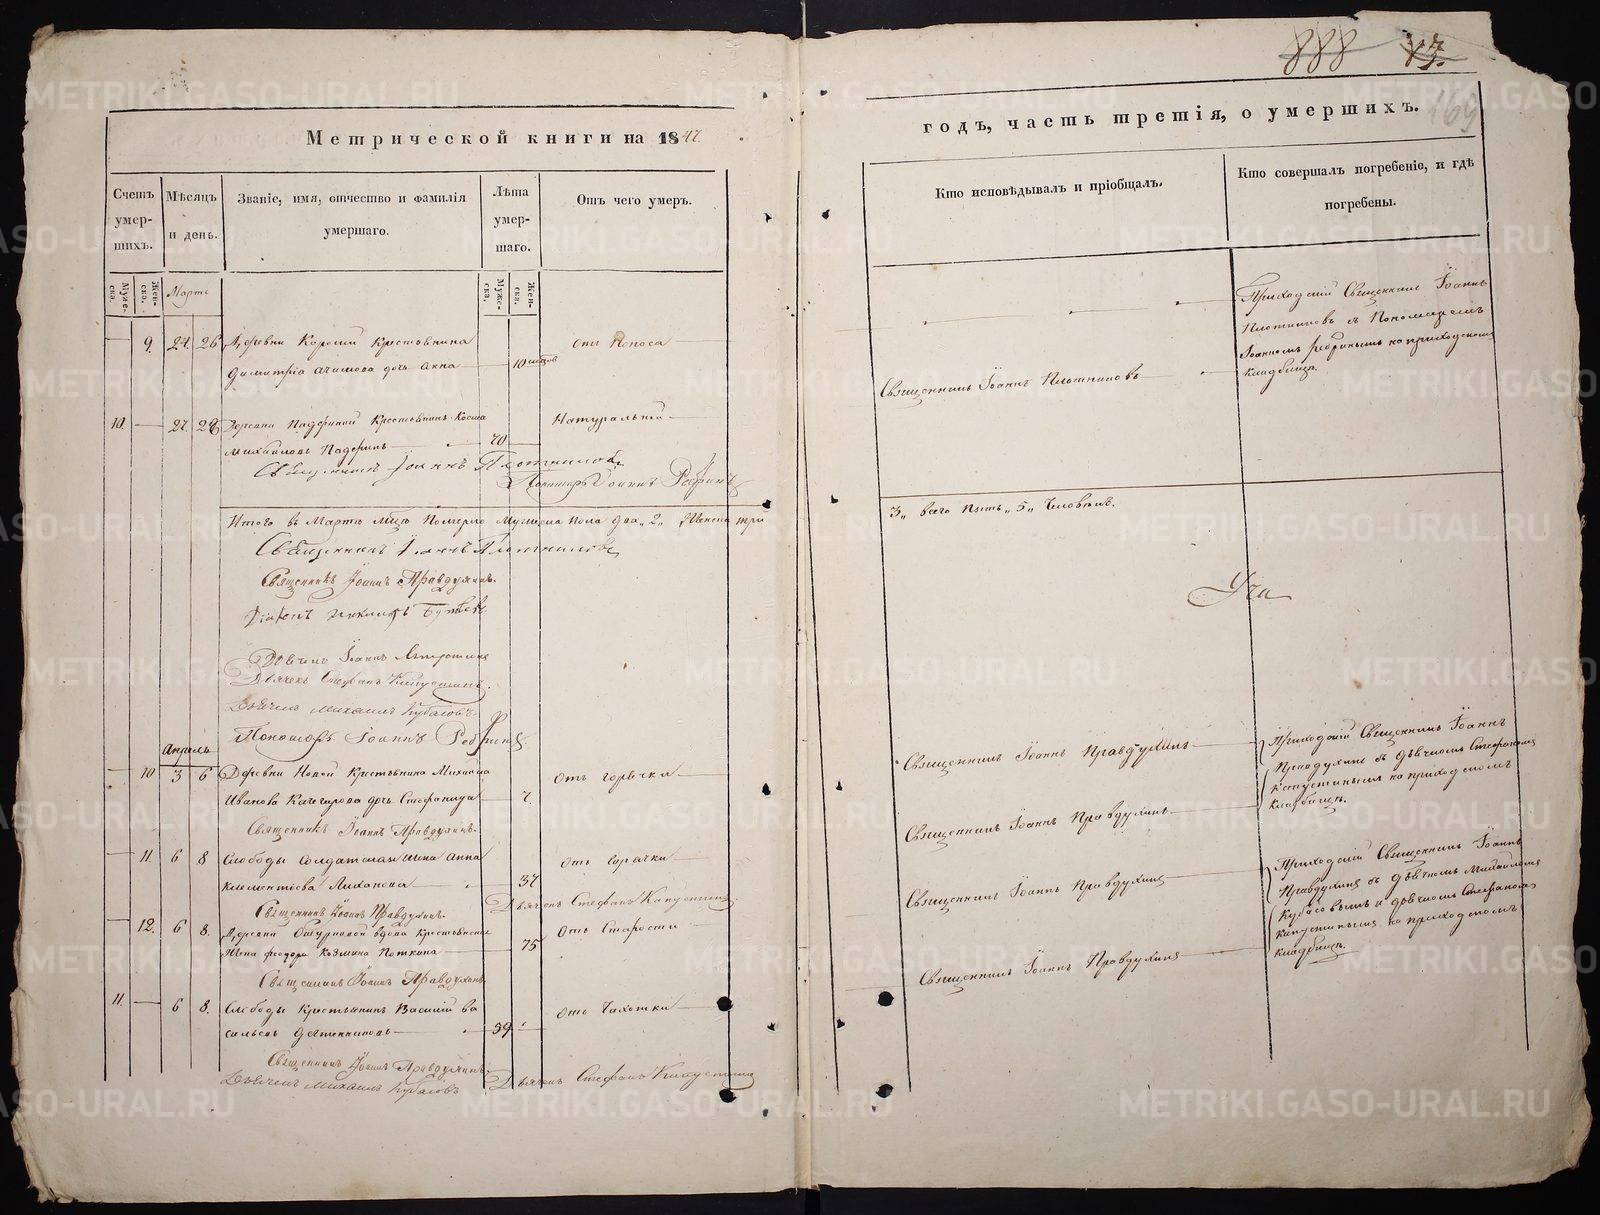 888 13.
169
Метрической книги на 1847.
годъ, часть третія, о умершихъ.
Счетъ умер-шихъ.
Мѣсяцъ и день.
Званіе, имя, отчество и фамилія умершаго.
Лѣта умер-шаго.
Отъ чего умеръ.
Кто исповѣдывалъ и пріобщалъ.
Кто совершалъ погребеніе, и гдѣ погребены.
Муже-ска.
Жен-ска.
Марта
Муже-ска.
Жен-ска.
9. 24. 26 Деревни Крестьянина
Димитрія дочь Анна 10 отъ Поноса
Священникъ Іоаннъ Плотниковъ
Приходскій Священникъ Іоаннъ
Плотниковъ съ Пономаремъ
Іоанномъ Ребринымъ на приходскомъ
кладбищѣ.
10. 27. 28 Деревни Падериной Крестьянинъ Косма
Михайловъ Падеринъ 70 Натуральной
Священникъ Іоаннъ Плотниковъ
Пономарь Іоаннъ Ребринъ
Итого въ Мартѣ м-цѣ Померло Мужеска пола два „2„ Женска три
3„ всего пять „5„ Человѣкъ.
Священникъ Іоаннъ Плотниковъ
Священникъ Іоаннъ Правдухинъ.
Діаконъ
Дьячекъ Іоаннъ
Дьячекъ Стефанъ Капустинъ.
Дьячекъ Михаилъ Кубасовъ
Пономарь Іоаннъ Ребринъ
Апрѣль
10 3 6 Деревни Новой Крестьянина Михаила
Иванова дочь Стефанида 7. отъ горячки
Священникъ Іоаннъ Правдухинъ
Священникъ Іоаннъ Правдухинъ.
Приходскій Священникъ Іоаннъ
Правдухинъ съ дьячкомъ Стефаномъ
Капустинымъ на приходскомъ
кладбищѣ.
11. 6 8 Слободы Солдатская жена Анна
Климентіева Лиханова 37 отъ Горячки
Священникъ Іоаннъ Правдухинъ
Священникъ Іоаннъ Правдухинъ. Дьячекъ Стефанъ Капустинъ.
12. 6 8. Деревни вдова Крестьянская
жена Феодора Козмина 75 Отъ Старости
Священникъ Іоаннъ Правдухинъ
Священникъ Іоаннъ Правдухинъ.
Приходскій Священникъ Іоаннъ
Правдухинъ съ дьячкомъ Михаиломъ
Кубасовымъ и дьячкомъ Стефаномъ
Капустинымъ на приходскомъ
кладбищѣ.
11. 6 8. Слободы Крестьянинъ Василій Ва
сильевъ 39. отъ Чахотки
Священникъ Іоаннъ Правдухинъ
Священникъ Іоаннъ Правдухинъ.
Дьячекъ Михаилъ Кубасовъ Дьячекъ Стефанъ Капустинъ
METRIKI.GASO-URAL.RU